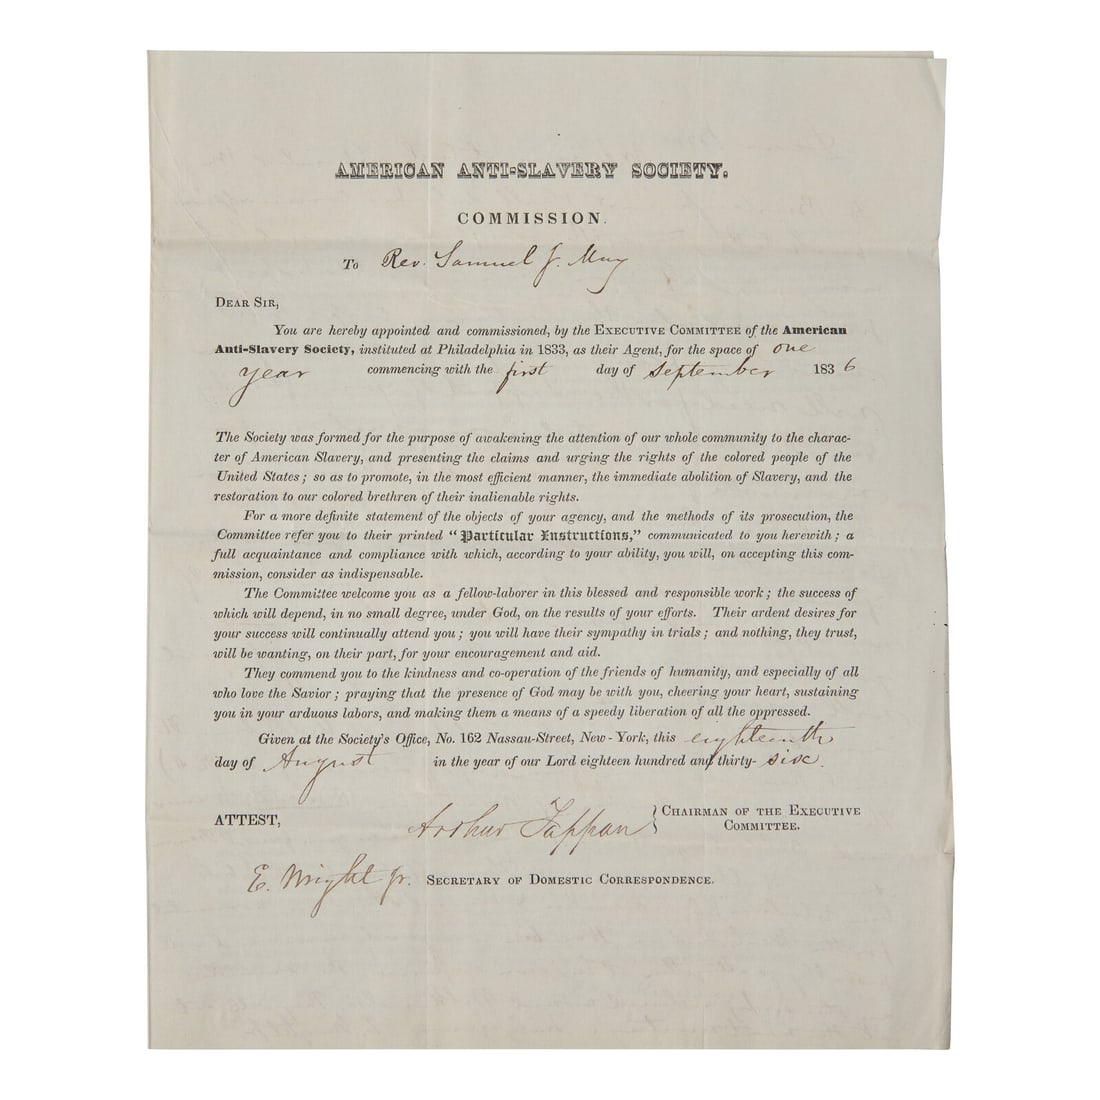 AMERICAN ANTI-SLAVERY SOCIETY.
COMMISSION.
To Rev. Samuel J. May
DEAR SIR,
You are hereby appointed and commissioned, by the EXECUTIVE COMMITTEE of the American
Anti-Slavery Society, instituted at Philadelphia in 1833, as their Agent, for the space of one
year commencing with the first day of September 1836
The Society was formed for the purpose of awakening the attention of our whole community to the charac-
ter of American Slavery, and presenting the claims and urging the rights of the colored people of the
United States; so as to promote, in the most efficient manner, the immediate abolition of Slavery, and the
restoration to our colored brethren of their inalienable rights.
For a more definite statement of the objects of your agency, and the methods of its prosecution, the
Committee refer you to their printed "Particular Instructions," communicated to you herewith; a
full acquaintance and compliance with which, according to your ability, you will, on accepting this com-
mission, consider as indispensable.
The Committee welcome you as a fellow-laborer in this blessed and responsible work; the success of
which will depend, in no small degree, under God, on the results of your efforts. Their ardent desires for
your success will continually attend you; you will have their sympathy in trials; and nothing, they trust,
will be wanting, on their part, for your encouragement and aid.
They commend you to the kindness and co-operation of the friends of humanity, and especially of all
who love the Savior; praying that the presence of God may be with you, cheering your heart, sustaining
you in your arduous labors, and making them a means of a speedy liberation of all the oppressed.
Given at the Society's Office, No. 162 Nassau-Street, New-York, this eighteenth
day of August in the year of our Lord eighteen hundred and thirty-six.
ATTEST, Arthur Tappan } CHAIRMAN OF THE EXECUTIVE
COMMITTEE.
E. Wright Jr. SECRETARY OF DOMESTIC CORRESPONDENCE.